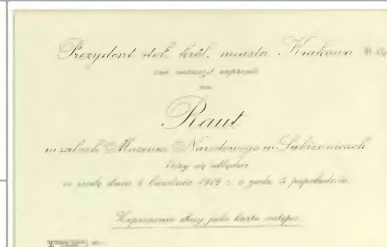 Prezydent stoł. król. miasta Krakowa
ma zaszczyt zaprosić
na
Raut
w salach Muzeum Narodowego w Sukiennicach
który się odbędzie
w środę dnia 2 kwietnia 1919 r. o godz. 5 popołudniu.
Zaproszenie służy jako karta wstępu.